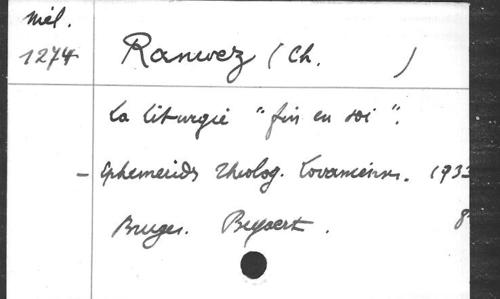 Mél.
1274
Ranwez (Ch. )
La liturgie "fin en soi".
- Ephemerides theolog. Lovanienses. 1933
Bruges. Beyaert. 8